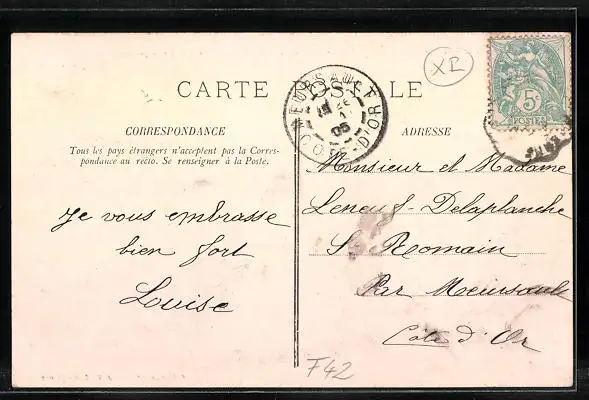 XR
CARTE POSTALE
CORRESPONDANCE
Tous les pays étrangers n'acceptent pas la Corres-
pondance au recto. Se renseigner à la Poste.
Je vous embrasse
bien fort
Louise
MEURSAULT
05
CÔTE-D'OR
5c
POSTES
ADRESSE
Monsieur et Madame
Leneuf Delaplanche
St Romain
Par Meursault
Côte d'Or
F42